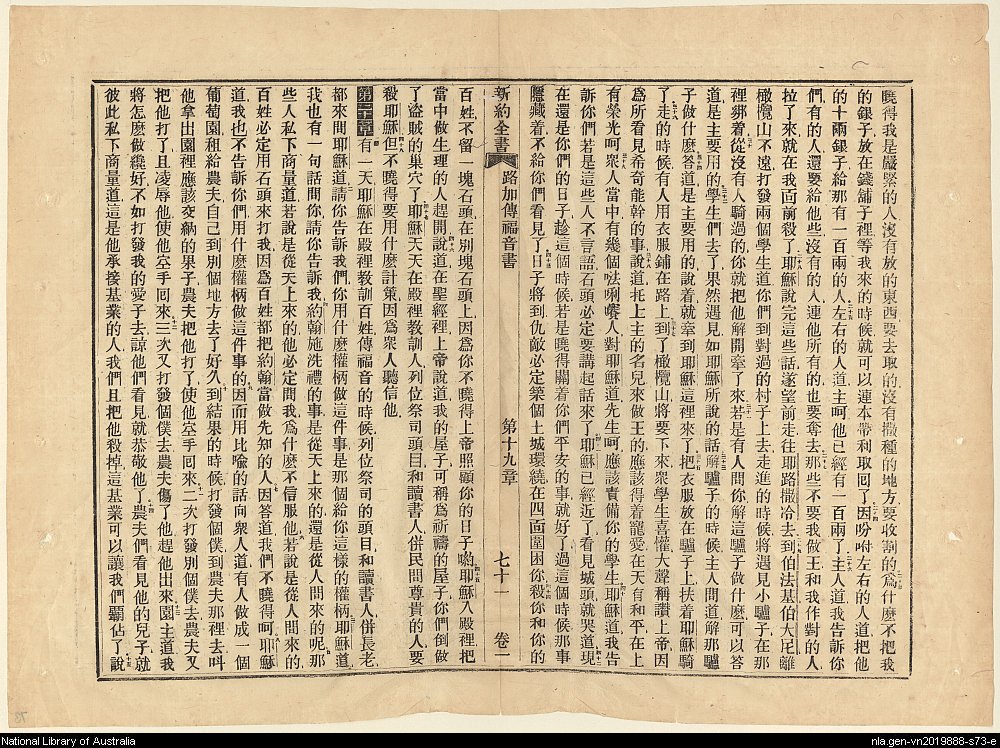 曉得我是嚴緊的人沒有放的東西要去取的沒有撒種的地方要收割的爲什麼不把我
的銀子放在錢舖子裡等我來的時候就可以連本帶利取囘了因吩咐左右的人道把他
的十兩銀子給那有一百兩的人左右的人道主呵他已經有一百兩了主人道我告訴你
們有的人還要給他些沒有的人連他所有的也要奪去那些不要我做王和我作對的人
拉了來就在我面前殺了耶穌說完這些話遂望前走往耶路撒冷去到伯法基伯大尼離
橄欖山不遠打發兩個學生道你們到對過的村子上去走進的時候將遇見小驢子在那
裡綁着從沒有人騎過的你就把他解開牽了來若是有人問你解這驢子做什麼可以答
道是主要用的學生們去了果然遇見如耶穌所說的話解驢子的時候主人問道解那驢
子做什麼答道是主要用的說着就牽到耶穌這裡來了把衣服放在驢子上扶着耶穌騎
了走的時候有人用衣服鋪在路上到了橄欖山將要下來衆學生喜懽大聲稱讚上帝因
爲所看見希奇能幹的事說道托上主的名兒來做王的應該得着寵愛在天有和平在上
有榮光呵衆人當中有幾個㗎唎㘔人對耶穌道先生呵應該責備你的學生耶穌道我告
訴你們若是這些人不言語石頭必定要講起話來了耶穌已經近了看見城頭就哭道現
在還是你們的日子趁這個時候若是曉得關着你們平安的事就好了過這個時候那事
隱藏着不給你們看見了日子將到仇敵必定築個土城環繞在四面圍困你殺你和你的
新約全書 路加傳福音書 第十九章 七十一 卷一
百姓不留一塊石頭在別塊石頭上因爲你不曉得上帝照顧你的日子喲耶穌入殿裡把
當中做生理的人趕開說道在聖經裡上帝說道我的屋子可稱爲祈禱的屋子你們倒做
了盜賊的巢穴了耶穌天天在殿裡教訓人列位祭司頭目和讀書人併民間尊貴的人要
殺耶穌但不曉得要用什麼計策因爲衆人聽信他
第二十章有一天耶穌在殿裡教訓百姓傳福音的時候列位祭司的頭目和讀書人併長老
都來問耶穌道請你告訴我們你用什麼權柄做這件事是那個給你這樣的權柄耶穌道
我也有一句話問你請你告訴我約翰施洗禮的事是從天上來的還是從人間來的呢那
些人私下商量道若說是從天上來的他必定問我爲什麼不信服他若說是從人間來的
百姓必定用石頭來打我因爲百姓都把約翰當做先知的人因答道我們不曉得呵耶穌
道我也不告訴你們用什麼權柄做這件事的因而用比喻的話向衆人道有人做成一個
葡萄園租給農夫自己到別個地方去了好久到結果的時候打發個僕到農夫那裡去叫
他拿出園裡應該交納的果子農夫把他打了使他空手囘來二次打發別個僕去農夫又
把他打了且凌辱他使他空手囘來三次又打發個僕去農夫傷了他趕他出來園主道我
將怎麼做纔好不如打發我的愛子去諒他們看見就恭敬他了農夫們看見他的兒子就
彼此私下商量道這是他承接基業的人我們且把他殺掉這基業可以讓我們霸佔了說
National Library of Australia
nla.gen-vn2019888-s73-e